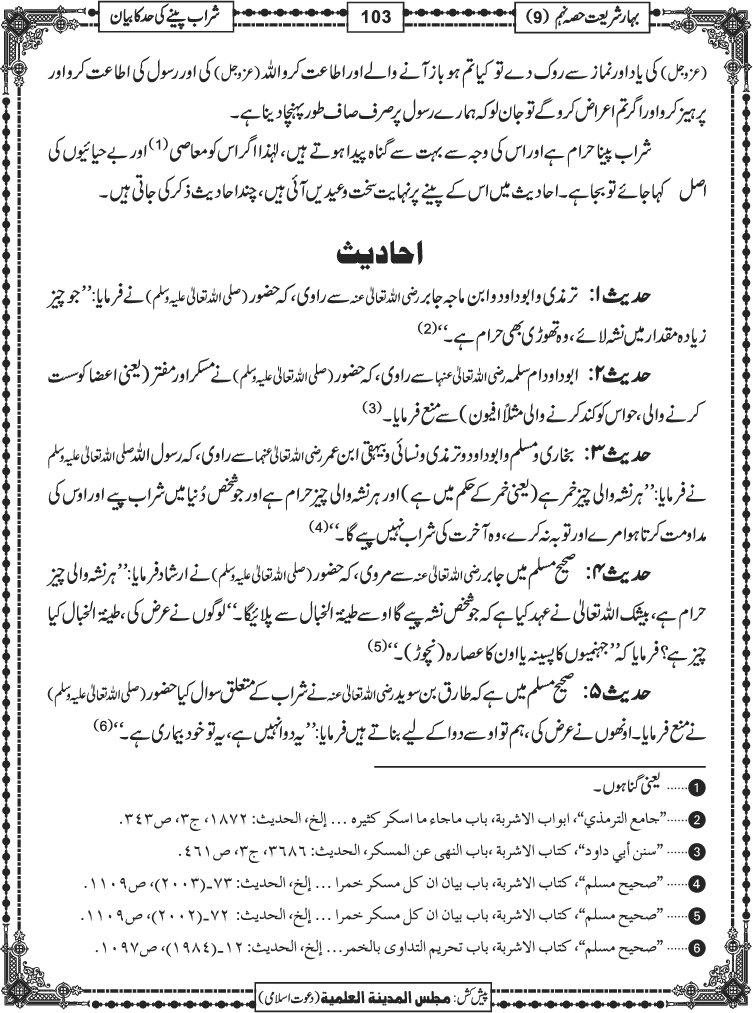 بہارِ شریعت حصہ نہم (9)
103
شراب پینے کی حد کا بیان
(عزوجل) کی یاد اور نماز سے روک دے تو کیا تم ہو باز آنے والے اور اطاعت کرو اللہ (عزوجل) کی اور رسول کی اطاعت کرو اور
پرہیز کرو اور اگر تم اعراض کرو گے تو جان لو کہ ہمارے رسول پر صرف صاف طور پہنچا دینا ہے۔
شراب پینا حرام ہے اور اس کی وجہ سے بہت سے گناہ پیدا ہوتے ہیں، لہٰذا اگر اس کو معاصی (1) اور بے حیائیوں کی
اصل کہا جائے تو بجا ہے۔ احادیث میں اس کے پینے پر نہایت سخت وعیدیں آئی ہیں، چند احادیث ذکر کی جاتی ہیں۔
احادیث
حدیث ۱: ترمذی و ابوداود و ابن ماجہ جابر رضی اللہ تعالیٰ عنہ سے راوی، کہ حضور (صلی اللہ تعالیٰ علیہ وسلم) نے فرمایا: ’’جو چیز
زیادہ مقدار میں نشہ لائے، وہ تھوڑی بھی حرام ہے۔‘‘ (2)
حدیث ۲: ابوداود ام سلمہ رضی اللہ تعالیٰ عنہا سے راوی، کہ حضور (صلی اللہ تعالیٰ علیہ وسلم) نے مسکر اور مفتر (یعنی اعضا کو سست
کرنے والی، حواس کو کند کرنے والی مثلاً افیون) سے منع فرمایا۔ (3)
حدیث ۳: بخاری و مسلم و ابوداود و ترمذی و نسائی و بیہقی ابن عمر رضی اللہ تعالیٰ عنہما سے راوی، کہ رسول اللہ صلی اللہ تعالیٰ علیہ وسلم
نے فرمایا: ’’ہر نشہ والی چیز خمر ہے (یعنی خمر کے حکم میں ہے) اور ہر نشہ والی چیز حرام ہے اور جو شخص دُنیا میں شراب پیے اور اوس کی
مداومت کرتا ہوا مرے اور توبہ نہ کرے، وہ آخرت کی شراب نہیں پیے گا۔‘‘ (4)
حدیث ۴: صحیح مسلم میں جابر رضی اللہ تعالیٰ عنہ سے مروی، کہ حضور (صلی اللہ تعالیٰ علیہ وسلم) نے ارشاد فرمایا: ’’ہر نشہ والی چیز
حرام ہے، بیشک اللہ تعالیٰ نے عہد کیا ہے کہ جو شخص نشہ پیے گا اوسے طینۃ الخبال سے پلائیگا۔‘‘ لوگوں نے عرض کی، طینۃ الخبال کیا
چیز ہے؟ فرمایا کہ ’’جہنمیوں کا پسینہ یا اون کا عصارہ (نچوڑ)۔‘‘ (5)
حدیث ۵: صحیح مسلم میں ہے کہ طارق بن سوید رضی اللہ تعالیٰ عنہ نے شراب کے متعلق سوال کیا حضور (صلی اللہ تعالیٰ علیہ وسلم)
نے منع فرمایا۔ اونھوں نے عرض کی، ہم تو اوسے دوا کے لیے بناتے ہیں فرمایا: ’’یہ دوا نہیں ہے، یہ تو خود بیماری ہے۔‘‘ (6)
1 ...... یعنی گناہوں۔
2 ......”جامع الترمذي“، ابواب الاشربة، باب ماجاء ما اسکر کثیره ... إلخ، الحدیث: ١٨٧٢، ج٣، ص٣٤٣.
3 ......”سنن أبي داود“، کتاب الاشربة، باب النهی عن المسکر، الحدیث: ٣٦٨٦، ج٣، ص٤٦١.
4 ......”صحیح مسلم“، کتاب الاشربة، باب بیان ان کل مسکر خمرا ... إلخ، الحدیث: ٧٣۔(٢٠٠٣)، ص١١٠٩.
5 ......”صحیح مسلم“، کتاب الاشربة، باب بیان ان کل مسکر خمرا ... إلخ، الحدیث: ٧٢۔(٢٠٠٢)، ص١١٠٩.
6 ......”صحیح مسلم“، کتاب الاشربة، باب تحریم التداوی بالخمر... إلخ، الحدیث: ١٢۔(١٩٨٤)، ص١٠٩٧.
پیش کش: مجلس المدینة العلمیة (دعوت اسلامی)